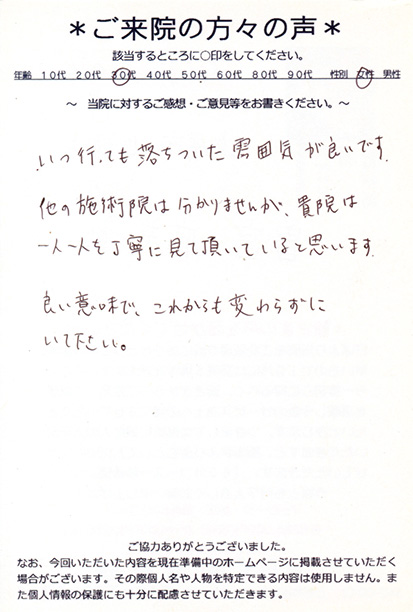 ＊ご来院の方々の声＊
該当するところに〇印をしてください。
年齢 10代 20代 30代 40代 50代 60代 80代 90代 性別 女性 男性
～ 当院に対するご感想・ご意見等をお書きください。～
いつ行っても落ちついた雰囲気が良いです.
他の施術院は分かりませんが、貴院は
一人一人を丁寧に見て頂いていると思います.
良い意味で、これからも変わらずに
いて下さい。
ご協力ありがとうございました。
なお、今回いただいた内容を現在準備中のホームページに掲載させていただく
場合がございます。その際個人名や人物を特定できる内容は使用しません。ま
た個人情報の保護にも十分に配慮させていただきます。